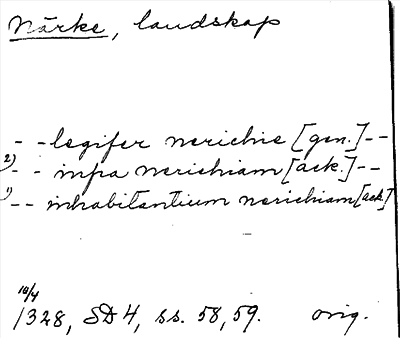 Närke, landskap
- - legifer nerichie [gen.] - -
2) - - infra nerichiam [ack.] - -
1) - - inhabitantium nerichiam [ack.]
10/4
1328, SD 4, ss. 58, 59. orig.